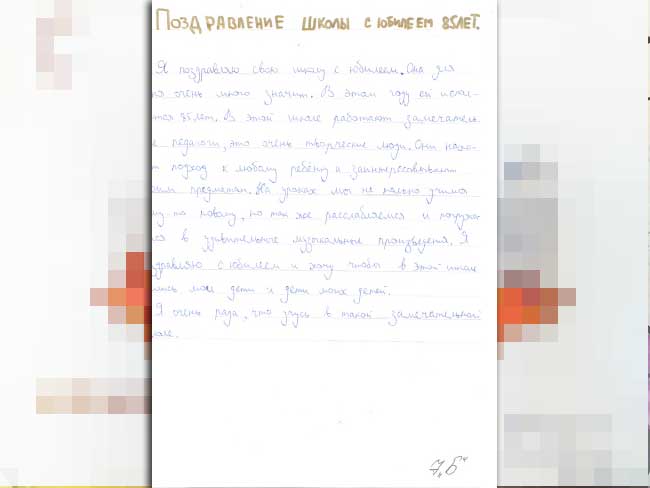 ПОЗДРАВЛЕНИЕ ШКОЛЫ С ЮБИЛЕЕМ 85 ЛЕТ.
Я поздравляю свою школу с юбилеем. Она для
очень много значит. В этом году ей испол-
тся 85 лет. В этой школе работают замечатель
е педагоги, это очень творческие люди. Они нахо-
т подход к любому ребёнку и заинтерессовывают
оим предметам. На уроках мы не только учимся
му то новому, но так же расслабляемся и погружа
ся в удивительное музыкальные произведения. Я
здравляю с юбилеем и хочу чтобы в этой школе
ись мои дети и дети моих детей.
Я очень рада, что учусь в такой замечательной
оле.
7 „Б"